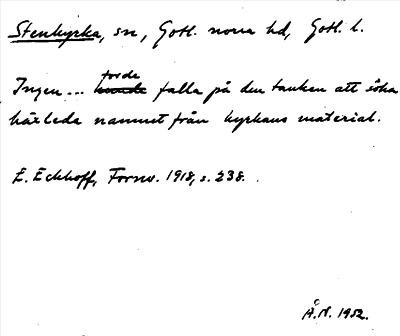 Stenkyrka, sn, Gotl. norra hd, Gotl. l.
Ingen... torde falla på den tanken att söka
härleda namnet från kyrkans material.
E. Eckhoff, Fornv. 1918, s. 238.
Å.N. 1952.